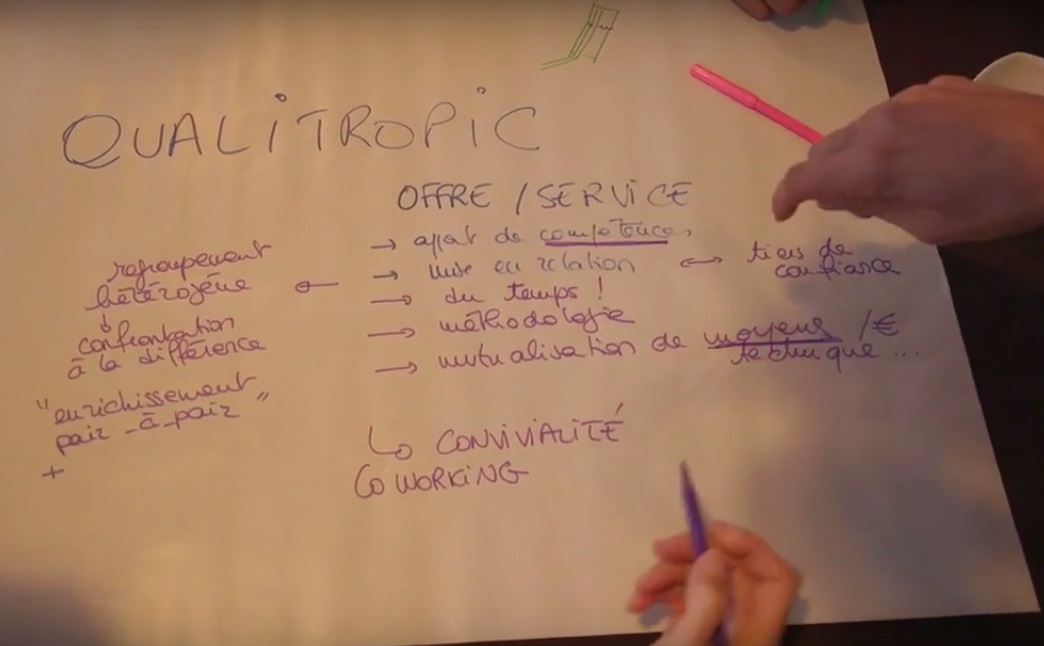 QUALITROPIC
OFFRE / SERVICE
→ appat de compétences
→ mise en relation ↔ tiers de confiance
→ du temps !
→ méthodologie
→ mutualisation de moyens / €
technique ...
↳ CONVIVIALITÉ
COWORKING
←
regroupement
hétérogène
↓
confrontation
à la différence
"enrichissement
pair-à-pair"
+